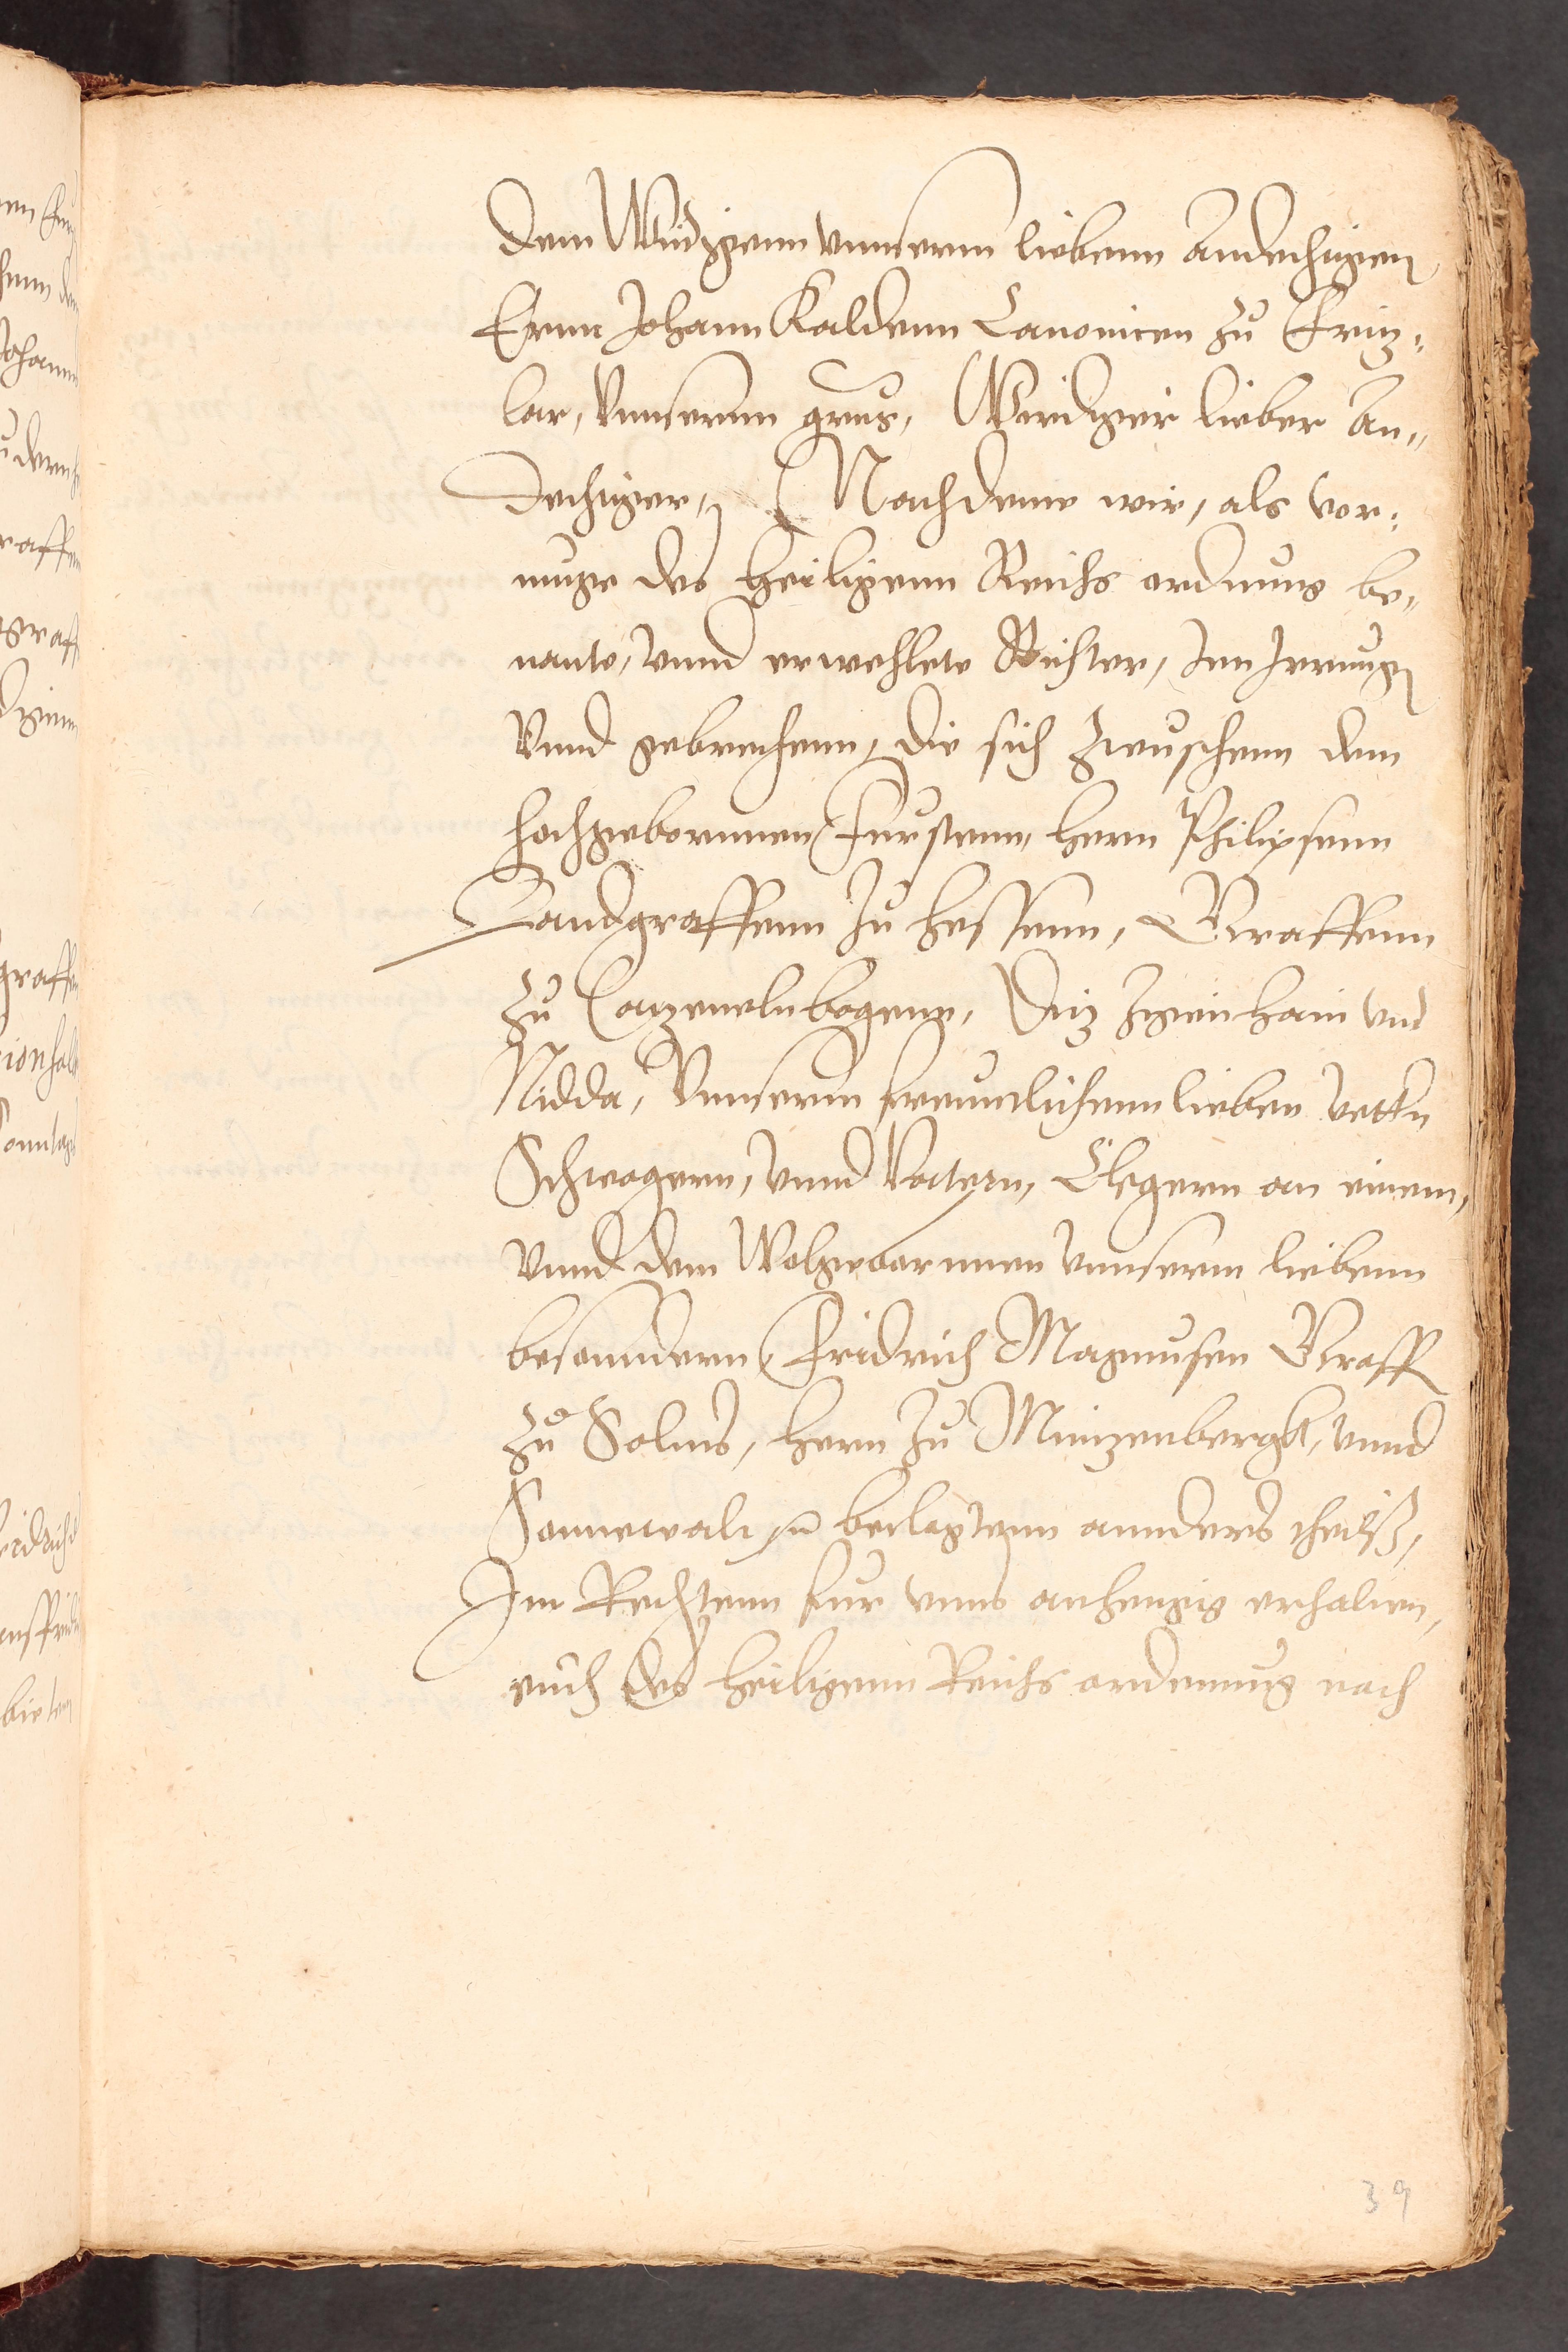 dem Wirdigenn unnserm liebenn Andechtigen
Ernn Johann Kaldenn Canonicen zu Fritz-
lar, Unnsernn grus, Wirdiger lieber An-
dechtiger, Nachdeme wir, als vor-
muge des heiligenn Reichs ordnung be-
nante, unnd erwehlete Richter, Inn Irrungen
Unnd gebrechenn, die sich zwuschenn dem
hochgebornnen Furstenn, hern Philipsenn
Landgraffenn zu hessenn, Graffenn
zu Catzenelnbogenn, Dietz Zigenhain und
Nidda, Unnserm freuntlichenn lieben Vettern
Schwagern, unnd Vatern, Clegern an einem,
Unnd dem Wolgebornnen unnserm liebenn
besonndern Fridrich Magnusen Graff
zu Solms, hern zu Mintzenbergk, unnd
Sonnewalt beclagtenn annders theilß,
Im Rechtenn fur unns anhengig erhalten,
euch des heiligenn Reichs ordennung nach
39